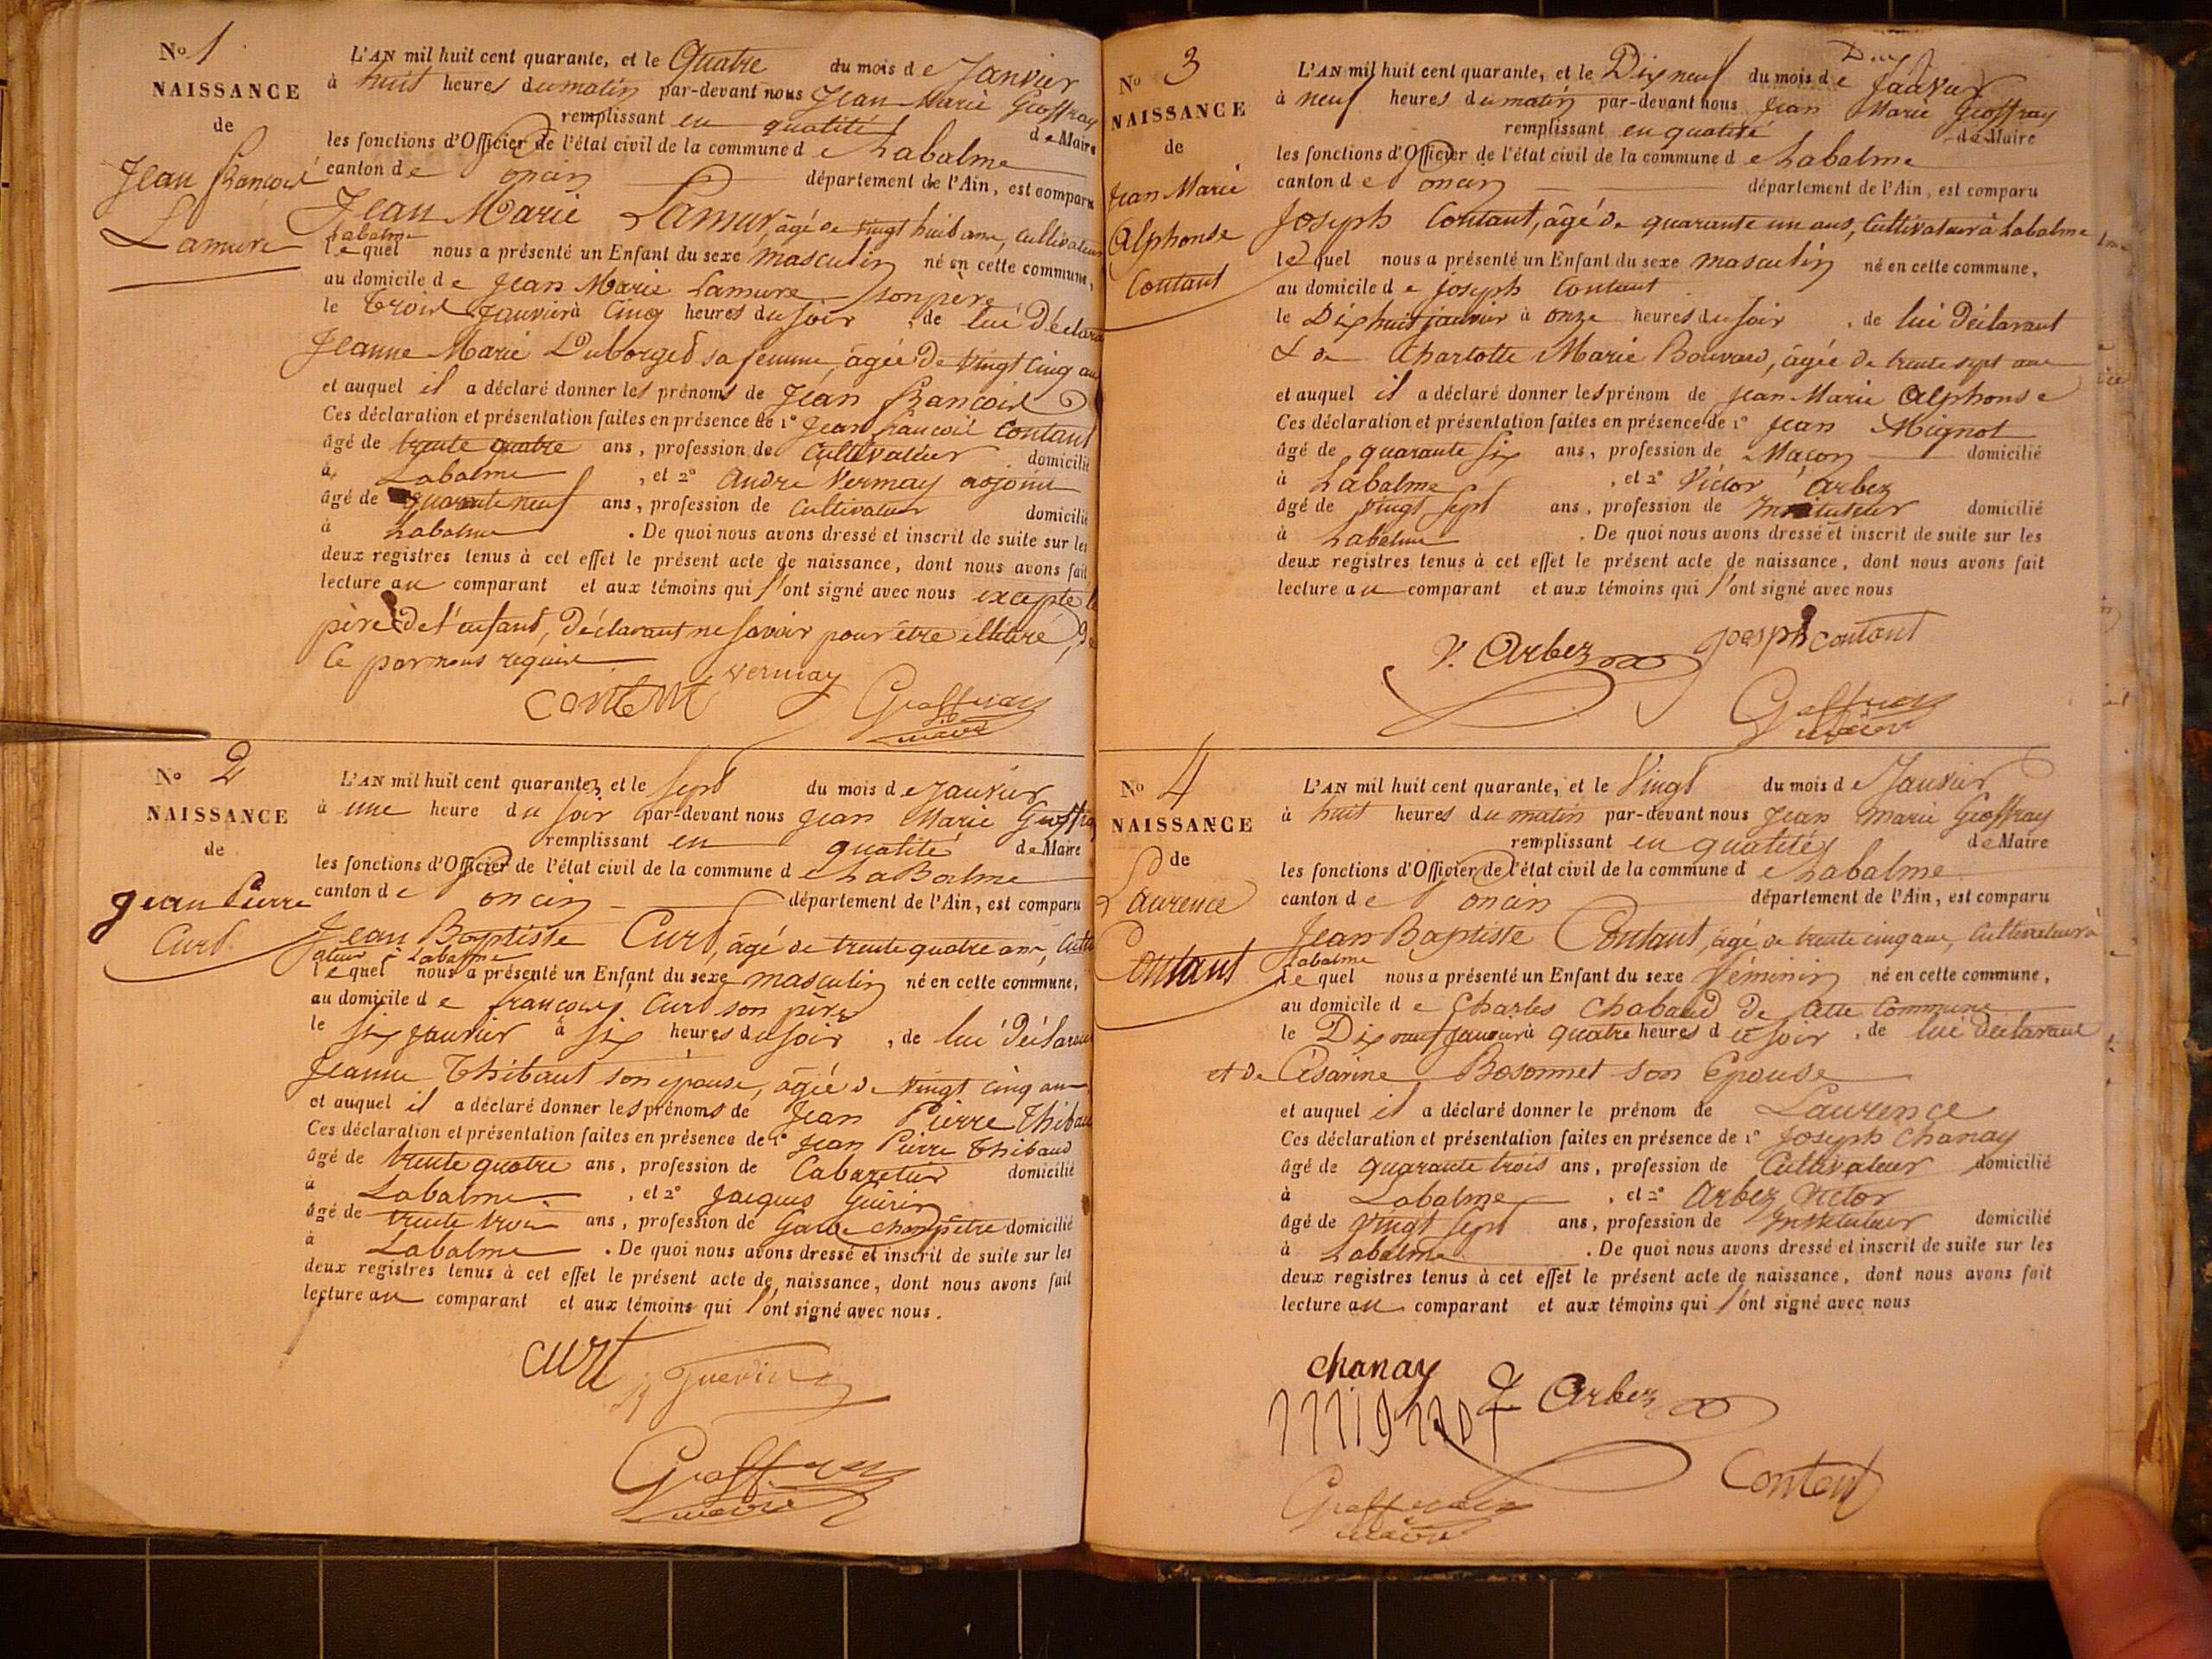 No 1
NAISSANCE
de
Jean François
Lamure
L'AN mil huit cent quarante, et le Quatre du mois de Janvier
à huit heures du matin par-devant nous Jean Marie Geoffray
remplissant en qualité de Maire
les fonctions d'Officier de l'état civil de la commune de Labalme
canton de Poncin département de l'Ain, est comparu
Jean Marie Lamure, âgé de vingt huit ans, cultivateur
Labalme
lequel nous a présenté un Enfant du sexe masculin né en cette commune,
au domicile de Jean Marie Lamure son père
le trois Janvier à cinq heures du soir, de lui déclara
Jeanne Marie Duborget sa femme, âgée de vingt cinq ans
et auquel il a déclaré donner les prénoms de Jean François
Ces déclaration et présentation faites en présence de 1° Jean françois Contant
âgé de trente quatre ans, profession de Cultivateur domicilié
à Labalme, et 2° André Vermay adjoint
âgé de quarante neuf ans, profession de cultivateur domicilié
à Labalme. De quoi nous avons dressé et inscrit de suite sur les
deux registres tenus à cet effet le présent acte de naissance, dont nous avons fait
lecture au comparant et aux témoins qui l'ont signé avec nous excepté le
père de l'enfant, déclarant ne savoir pour être illitéré, de
ce par nous requis
Contant vermay Geoffray
maire
No 2
NAISSANCE
de
Jean Pierre
Curt
L'AN mil huit cent quarante, et le Sept du mois de Janvier
à une heure du soir par-devant nous Jean Marie Geoffray
remplissant en qualité de Maire
les fonctions d'Officier de l'état civil de la commune de LaBalme
canton de Poncin département de l'Ain, est comparu
Jean Baptiste Curt, âgé de trente quatre ans, Culti
vateur à Labalme
lequel nous a présenté un Enfant du sexe masculin né en cette commune,
au domicile de françois Curt son père
le six janvier à six heures du soir, de lui déclarant
Jeanne Thibaut son épouse, âgée de vingt cinq ans
et auquel il a déclaré donner les prénoms de Jean Pierre Thibau
Ces déclaration et présentation faites en présence de 1° Jean Pierre Thibaud
âgé de trente quatre ans, profession de Cabaretier domicilié
à Labalme, et 2° Jacques Guérin
âgé de trente trois ans, profession de Garde champêtre domicilié
à Labalme. De quoi nous avons dressé et inscrit de suite sur les
deux registres tenus à cet effet le présent acte de naissance, dont nous avons fait
lecture au comparant et aux témoins qui l'ont signé avec nous.
Curt Guerin
Geoffray
maire
No 3
NAISSANCE
de
Jean Marie
Alphonse
Contant
L'AN mil huit cent quarante, et le Dix neuf du mois de Janvier
à neuf heures du matin par-devant nous Jean Marie Geoffray
remplissant en qualité de Maire
les fonctions d'Officier de l'état civil de la commune de Labalme
canton de Poncin département de l'Ain, est comparu
Joseph Contant, âgé de quarante un ans, Cultivateur à Labalme
lequel nous a présenté un Enfant du sexe masculin né en cette commune,
au domicile de joseph Contant
le Dix huit janvier à onze heures du soir, de lui déclarant
& de Charlotte Marie Bouvard, âgée de trente sept ans
et auquel il a déclaré donner les prénom de Jean Marie Alphonse
Ces déclaration et présentation faites en présence de 1° Jean Mignot
âgé de quarante six ans, profession de Maçon domicilié
à Labalme, et 2° Victor Arbez
âgé de vingt sept ans, profession de Instituteur domicilié
à Labalme. De quoi nous avons dressé et inscrit de suite sur les
deux registres tenus à cet effet le présent acte de naissance, dont nous avons fait
lecture au comparant et aux témoins qui l'ont signé avec nous
V. Arbez joseph contant
Geoffray
maire
No 4
NAISSANCE
de
Laurence
Contant
L'AN mil huit cent quarante, et le Vingt du mois de Janvier
à huit heures du matin par-devant nous Jean Marie Geoffray
remplissant en qualité de Maire
les fonctions d'Officier de l'état civil de la commune de Labalme
canton de Poncin département de l'Ain, est comparu
Jean Baptiste Contant, âgé de trente cinq ans, Cultivateur à
Labalme
lequel nous a présenté un Enfant du sexe féminin né en cette commune,
au domicile de Charles Chabaud de cette Commune
le Dix neuf janvier à quatre heures du soir, de lui déclarant
et de Césarine Bosonnet son Epouse
et auquel il a déclaré donner le prénom de Laurence
Ces déclaration et présentation faites en présence de 1° Joseph Chanay
âgé de quarante trois ans, profession de Cultivateur domicilié
à Labalme, et 2° Arbez Victor
âgé de vingt sept ans, profession de Instituteur domicilié
à Labalme. De quoi nous avons dressé et inscrit de suite sur les
deux registres tenus à cet effet le présent acte de naissance, dont nous avons fait
lecture au comparant et aux témoins qui l'ont signé avec nous
chanay Arbez
Contant
Geoffray
maire